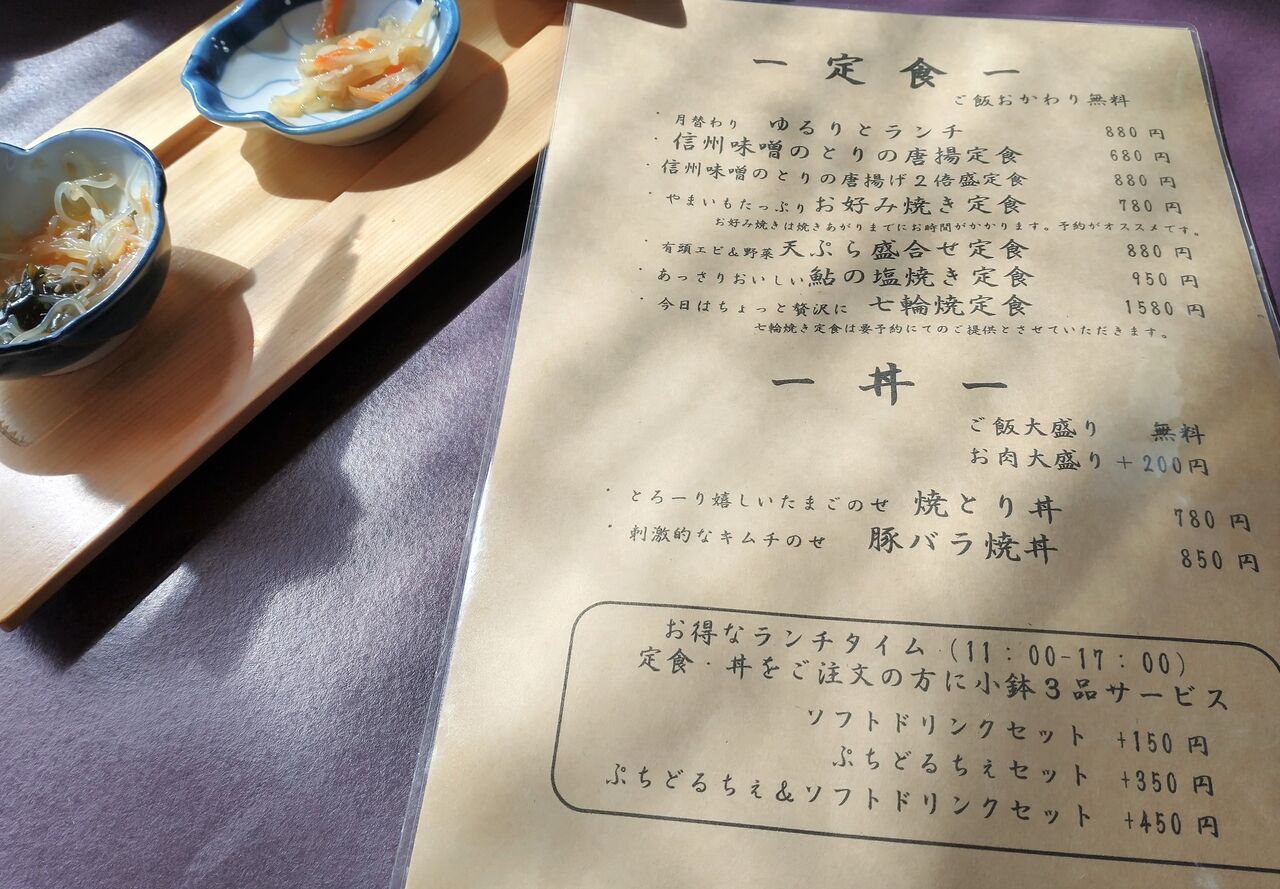 ー 定 食 ー
ご飯おかわり無料
・月替わり ゆるりとランチ 880円
・信州味噌のとりの唐揚定食 680円
・信州味噌のとりの唐揚げ2倍盛定食 880円
・やまいもたっぷりお好み焼き定食 780円
お好み焼きは焼きあがりまでにお時間がかかります。予約がオススメです。
・有頭エビ&野菜天ぷら盛合せ定食 880円
・あっさりおいしい鮎の塩焼き定食 950円
・今日はちょっと贅沢に 七輪焼定食 1580円
七輪焼き定食は要予約にてのご提供とさせていただきます。
ー 丼 ー
ご飯大盛り 無料
お肉大盛り+200円
・とろーり嬉しいたまごのせ 焼とり丼 780円
・刺激的なキムチのせ 豚バラ焼丼 850円
お得なランチタイム(11:00-17:00)
定食・丼をご注文の方に小鉢3品サービス
ソフトドリンクセット +150円
ぷちどるちぇセット +350円
ぷちどるちぇ&ソフトドリンクセット +450円